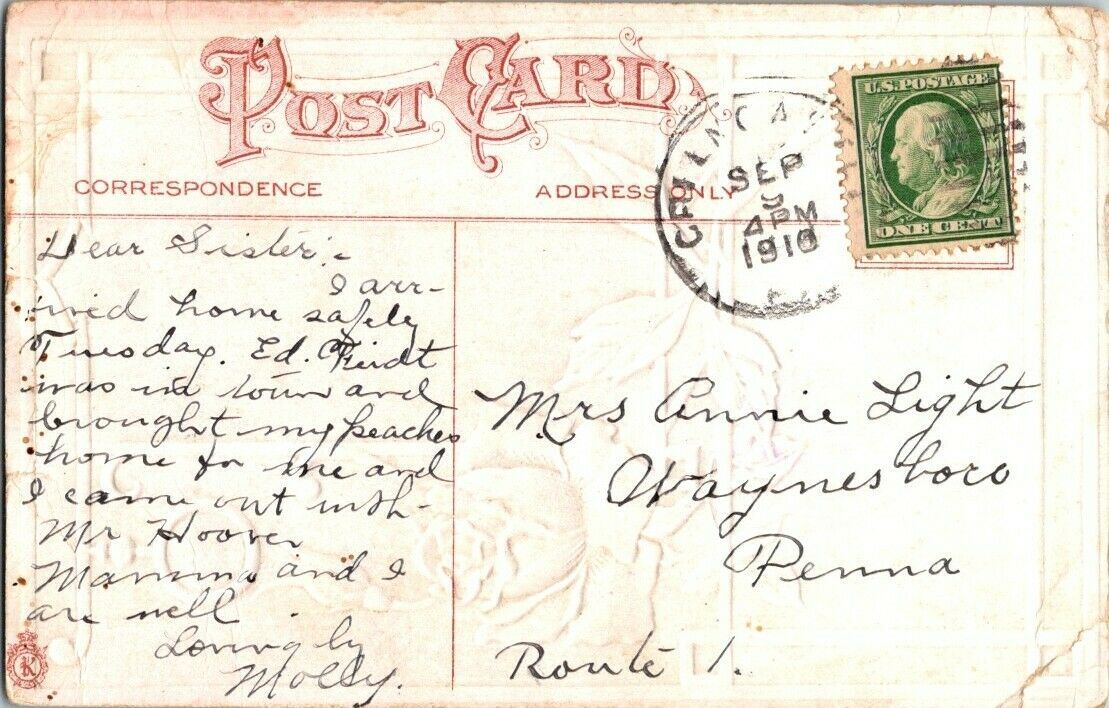 POST CARD
CORRESPONDENCE
ADDRESS ONLY
SEP
4 PM
1910
U.S. POSTAGE
ONE CENT
Dear Sister:-
I arr-
ived home safely
Tuesday. Ed.
was in town and
brought my peaches
home for me and
I came out with
Mr Hoover
Mamma and I
are well.
Loving ly
Molly.
Mrs Annie Light
Waynesboro
Penna
Route 1.
K